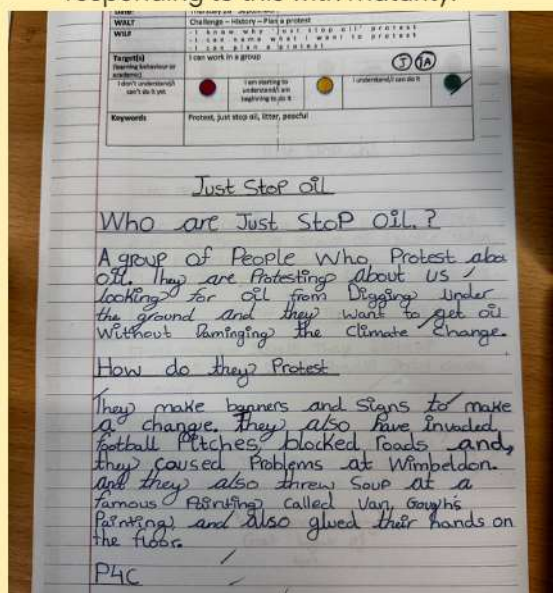 responding to this with maturity.
WALT Challenge – History – Plan a protest
WILF - I know why 'just stop oil' protest
- I can name what I want to protest
- I can plan a protest
Target(s)
(learning behaviour or academic)
I can work in a group
J TA
I don't understand/I can't do it yet
I am starting to understand/I am beginning to do it
I understand/I can do it
Keywords Protest, just stop oil, litter, peaceful
Just Stop oil
Who are Just Stop Oil.?
A group of People Who Protest abou
oil. They are Protesting about us
looking for oil from Digging under
the ground and they want to get oil
Without Daminging the Climate Change.
How do they Protest
They make banners and signs to make
a change. They also have invaded
football Pitches, blocked roads and,
they caused Problems at Wimbeldon.
and they also threw Soup at a
famous Painting called Van Gouyh's
Painting and also glued their hands on
the floor.
P4C